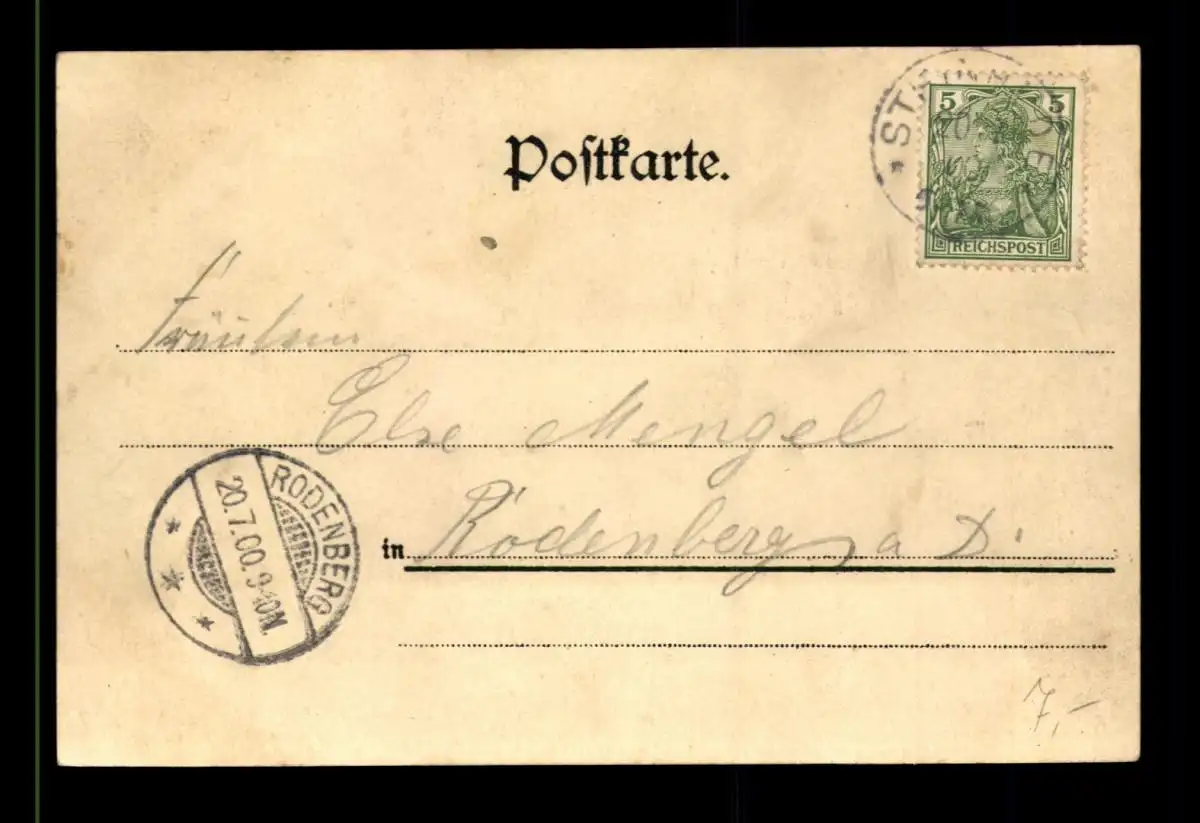 Postkarte.
5 5
REICHSPOST
Fräulein
Else Mengel
in Rodenberg a D.
RODENBERG
20.7.00.9-10N.
7,-